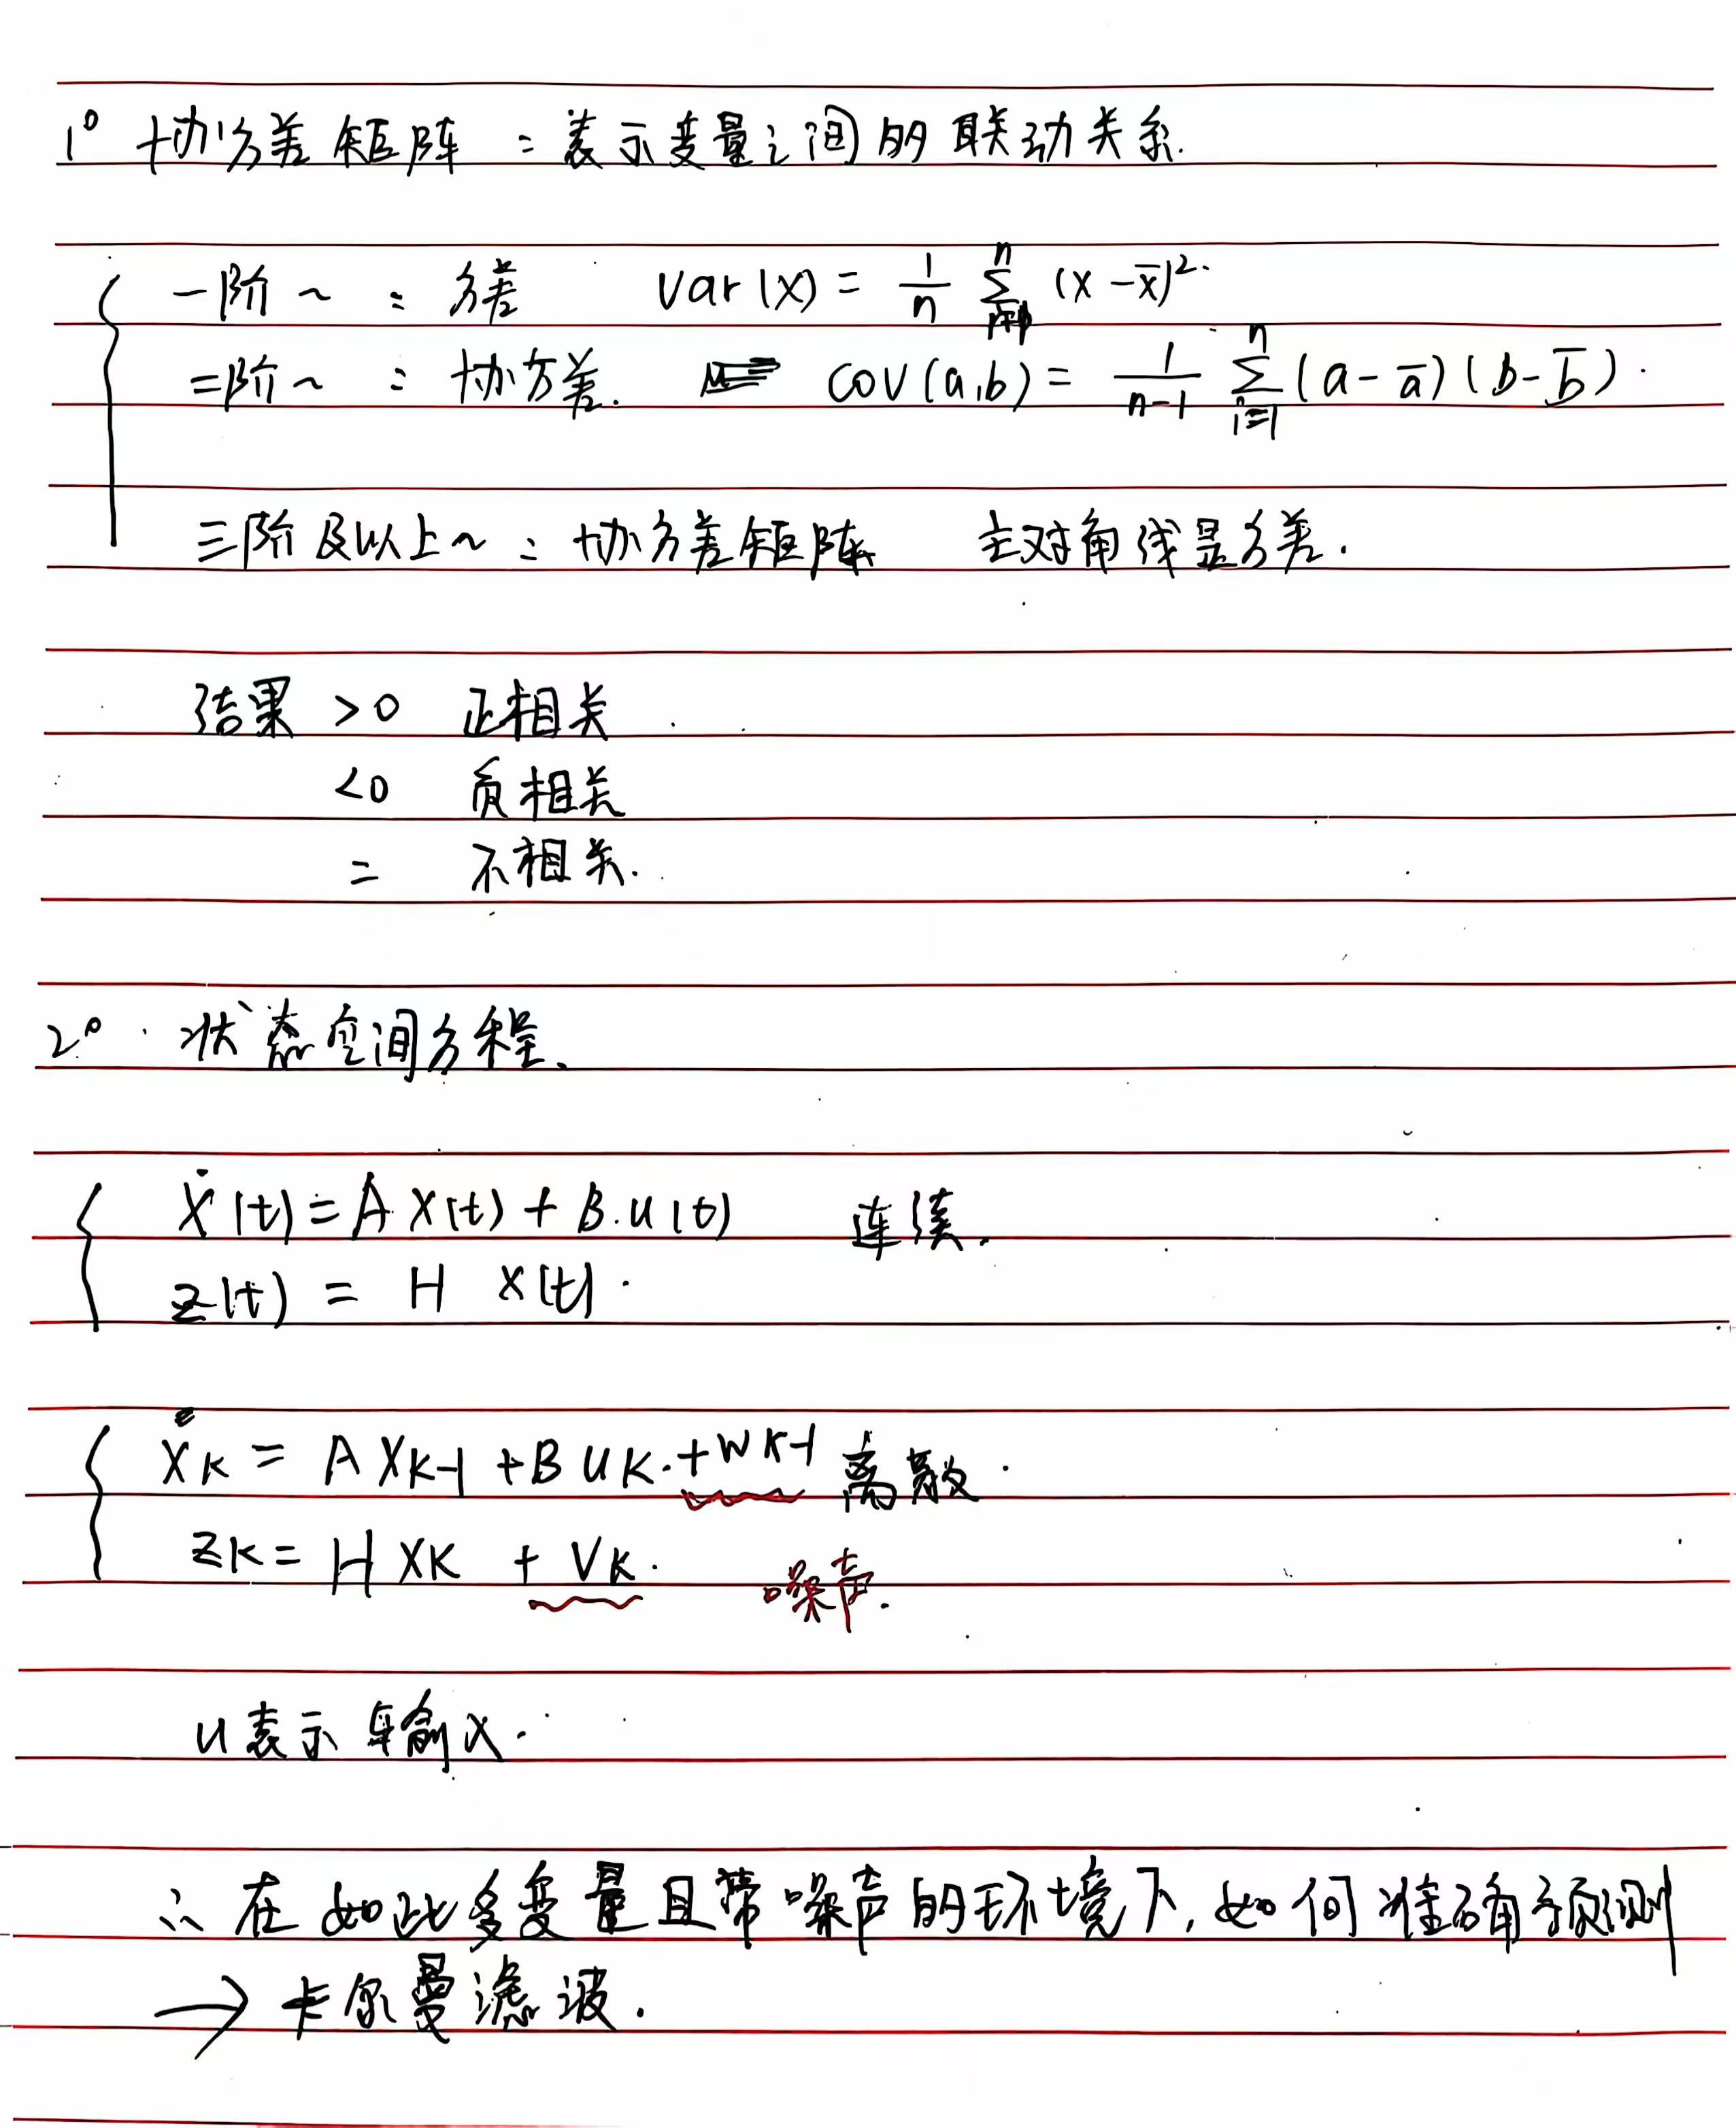 1° 协方差矩阵：表示变量之间的联动关系.
一阶～：方差 Var(x) = 1/n Σ (x-x̄)².
二阶～：协方差. COV(a,b) = 1/(n-1) Σ(i=1 to n) (a-a̅)(b-b̅).
三阶及以上～：协方差矩阵 主对角线是方差.
结果 >0 正相关
<0 负相关
= 不相关.
2° 状态空间方程.
Ẋ(t) = A X(t) + B.u(t) 连续.
Z(t) = H X(t).
Xk = A Xk-1 + B Uk. + Wk-1 离散.
Zk = H Xk + Vk. 噪声.
u表示输入.
∴ 在如此多变量且带噪声的环境下, 如何准确预测
→ 卡尔曼滤波.